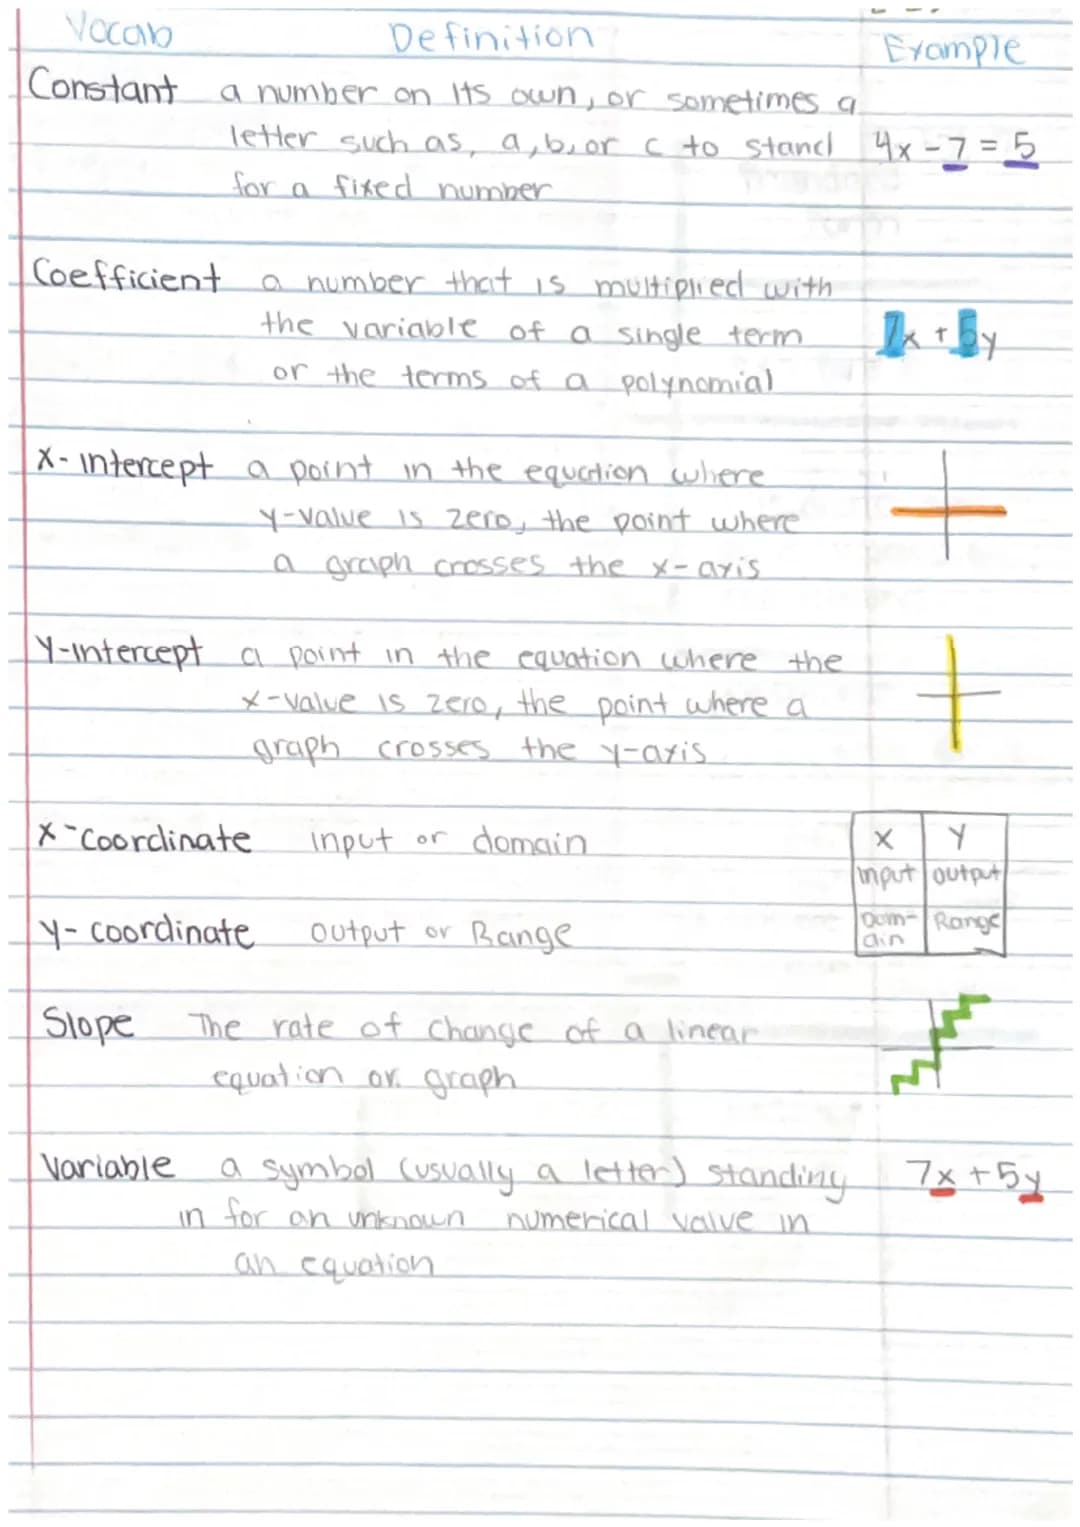 Vocab Definition Example
Constant a number on its own, or sometimes a
letter such as, a, b, or c to stand 4x - 7 = 5
for a fixed number
Coefficient a number that is multiplied with
the variable of a single term 7x + 5y
or the terms of a polynomial
X-intercept a point in the equation where
y-value is zero, the point where
a graph crosses the x-axis
Y-intercept a point in the equation where the
x-value is zero, the point where a
graph crosses the y-axis
X-Coordinate input or domain X Y
input output
Y-coordinate output or Range Dom- Range
ain
Slope The rate of change of a linear
equation or graph
Variable a symbol (usually a letter) standing 7x + 5y
in for an unknown numerical value in
an equation